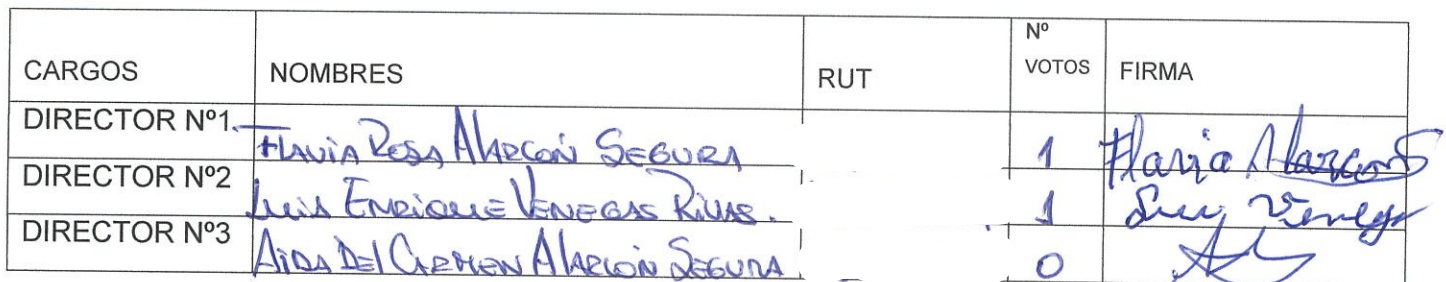 CARGOS NOMBRES RUT Nº VOTOS FIRMA
DIRECTOR Nº1 Flavia Rosa Alarcón Segura 1 Flavia Alarcon S
DIRECTOR Nº2 Luis Enrique Venegas Rivas. 1 Luis Venegas
DIRECTOR Nº3 Aida Del Carmen Alarcón Segura 0